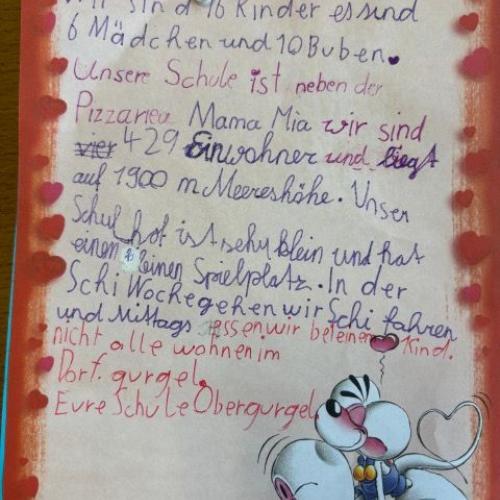 Wir sind 16 Kinder es sind
6 Mädchen und 10 Buben.
Unsere Schule ist neben der
Pizzariea Mama Mia wir sind
vier 429 Einwohner und liegt
auf 1900 m Meereshöhe. Unser
Schulhof ist sehr klein und hat
einen kleinen Spielplatz. In der
Schi Woche gehen wir Schi fahren
und Mittags essen wir bei einem Kind.
nicht alle wohnen im
Dorf gurgel.
Eure Schule Obergurgel